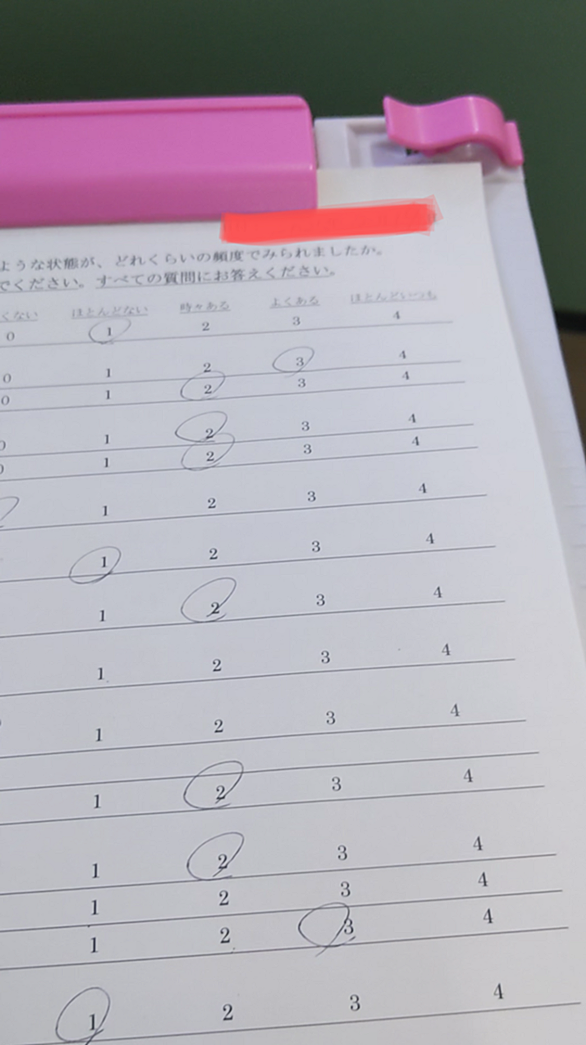 ような状態が、どれくらいの頻度でみられましたか。
でください。すべての質問にお答えください。
くない ほとんどない 時々ある よくある ほとんどいつも
0 1 2 3 4
0 1 2 3 4
0 1 2 3 4
0 1 2 3 4
0 1 2 3 4
1 2 3 4
1 2 3 4
1 2 3 4
1 2 3 4
1 2 3 4
1 2 3 4
1 2 3 4
1 2 3 4
1 2 3 4
1 2 3 4